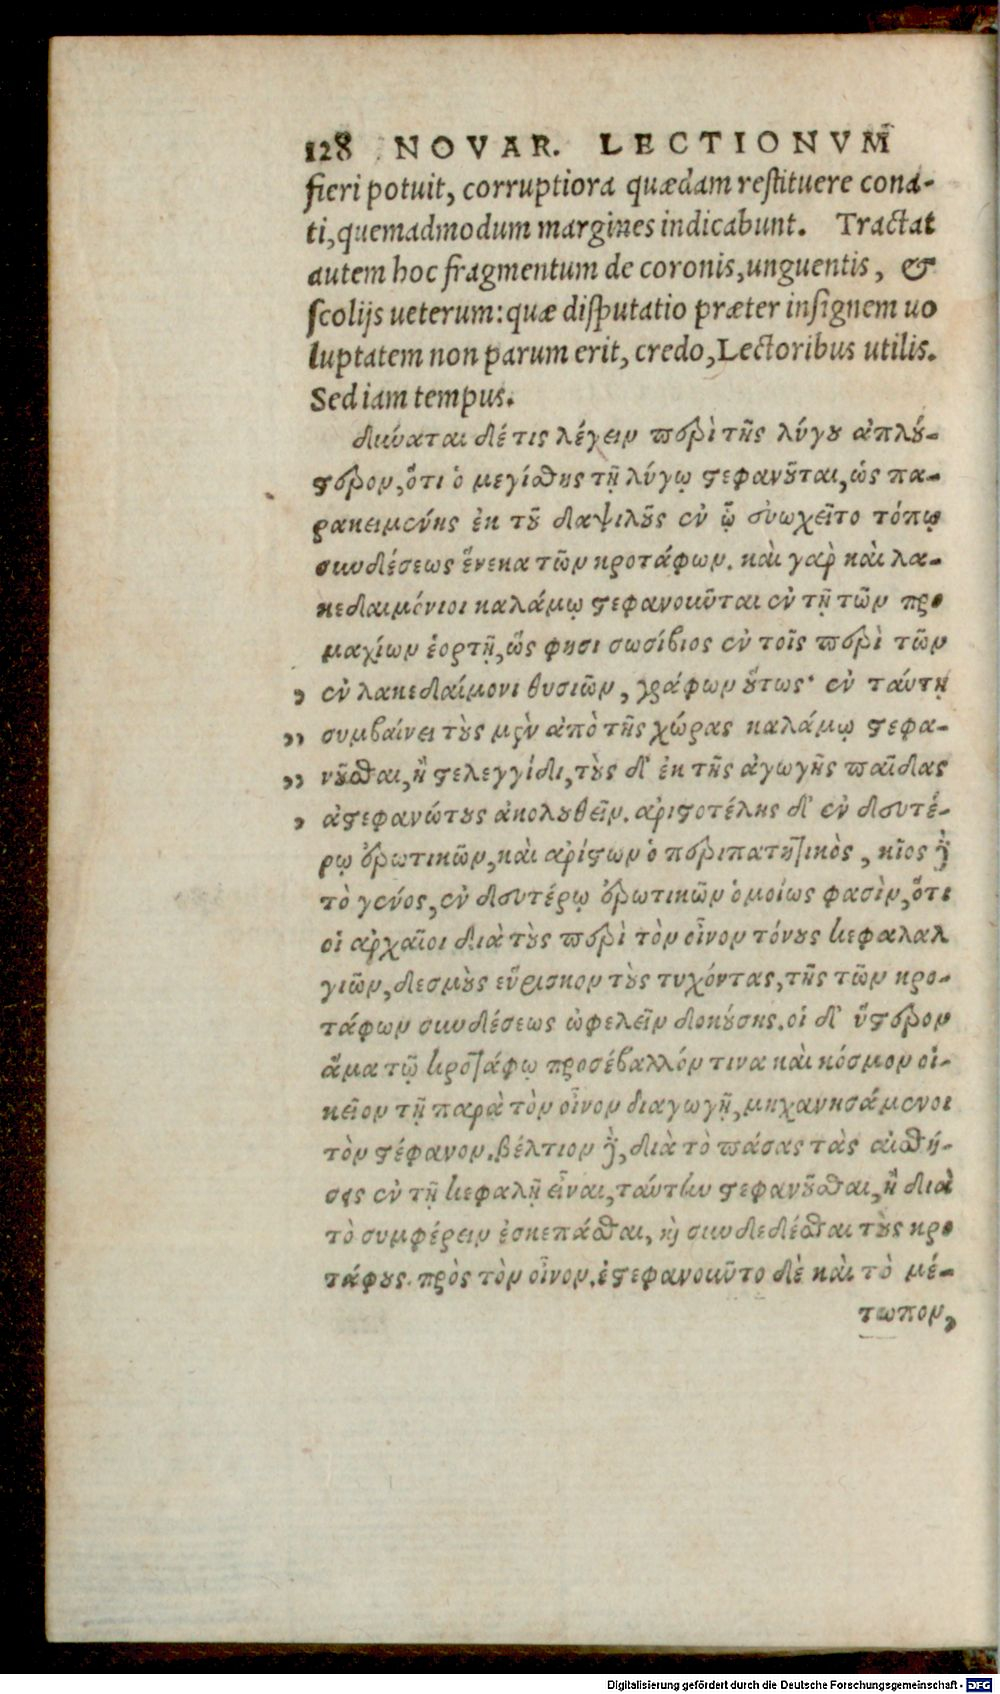 128 NOVAR. LECTIONVM
fieri potuit, corruptiora quædam restituere cona-
ti, quemadmodum margines indicabunt. Tractat
autem hoc fragmentum de coronis, unguentis, &
scolijs ueterum: quæ disputatio præter insignem uo
luptatem non parum erit, credo, Lectoribus utilis.
Sed iam tempus.
δύναται δέ τις λέγειν περὶ τῆς λύγου ἁπλού-
στερον, ὅτι ὁ μεγίσθης τῇ λύγῳ στεφανοῦται, ὡς πα-
ρακειμένης ἐκ τοῦ δαψιλοῦς ἐν ᾧ συωχεῖτο τόπῳ
συνδέσεως ἕνεκα τῶν κροτάφων. καὶ γαρ καὶ λα-
κεδαιμόνιοι καλάμῳ στεφανοῦνται ἐν τῇ τῶν προ
μαχίων ἑορτῇ, ὥς φησι σωσίβιος ἐν τοῖς περὶ τῶν
, ἐν λακεδαίμονι θυσιῶν, γράφων οὕτως· ἐν ταύτῃ
,, συμβαίνει τοὺς μὲν ἀπὸ τῆς χώρας καλάμῳ στεφα-
,, νοῦσθαι, ἢ στελεγγίδι, τοὺς δ' ἐκ τῆς ἀγωγῆς παῖδας
, ἀστεφανώτους ἀκολουθεῖν. ἀριστοτέλης δ' ἐν δευτέ-
ρῳ ἐρωτικῶν, καὶ ἀρίστων ὁ περιπατητικὸς, κῖος ἢ
τὸ γένος, ἐν δευτέρῳ ἐρωτικῶν ὁμοίως φασὶν, ὅτι
οἱ ἀρχαῖοι διὰ τοὺς περὶ τὸν οἶνον τόνους κεφαλαλ
γιῶν, δεσμοὺς εὕρισκον τοὺς τυχόντας, τῆς τῶν κρο-
τάφων συνδέσεως ὠφελεῖν δοκούσης. οἱ δ' ὕστερον
ἅμα τῷ κροτάφῳ προσέβαλλόν τινα καὶ κόσμον οἰ-
κεῖον τῇ παρὰ τὸν οἶνον διαγωγῇ, μηχανησάμενοι
τὸν στέφανον. βέλτιον ἢ, διὰ τὸ πάσας τὰς αἰσθή-
σεις ἐν τῇ κεφαλῇ εἶναι, ταύτην στεφανοῦσθαι, ἢ διὰ
τὸ συμφέρειν ἐσκεπάσθαι, καὶ συνδεδέσθαι τοὺς κρο
τάφους. πρὸς τὸν οἶνον. ἐστεφανοῦντο δὲ καὶ τὸ μέ-
τωπον,
Digitalisierung gefördert durch die Deutsche Forschungsgemeinschaft - DFG